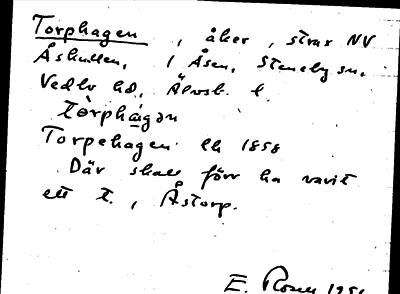 Torphagen, åker, strax NV
Åskullen, i Åsen, Steneby sn.
Vedbo hd, Älvsb. l.
tòrphá̱gən
Torpehagen lh 1858
Där skall förr ha varit
ett t., Åstorp.
E. Rosen 1951